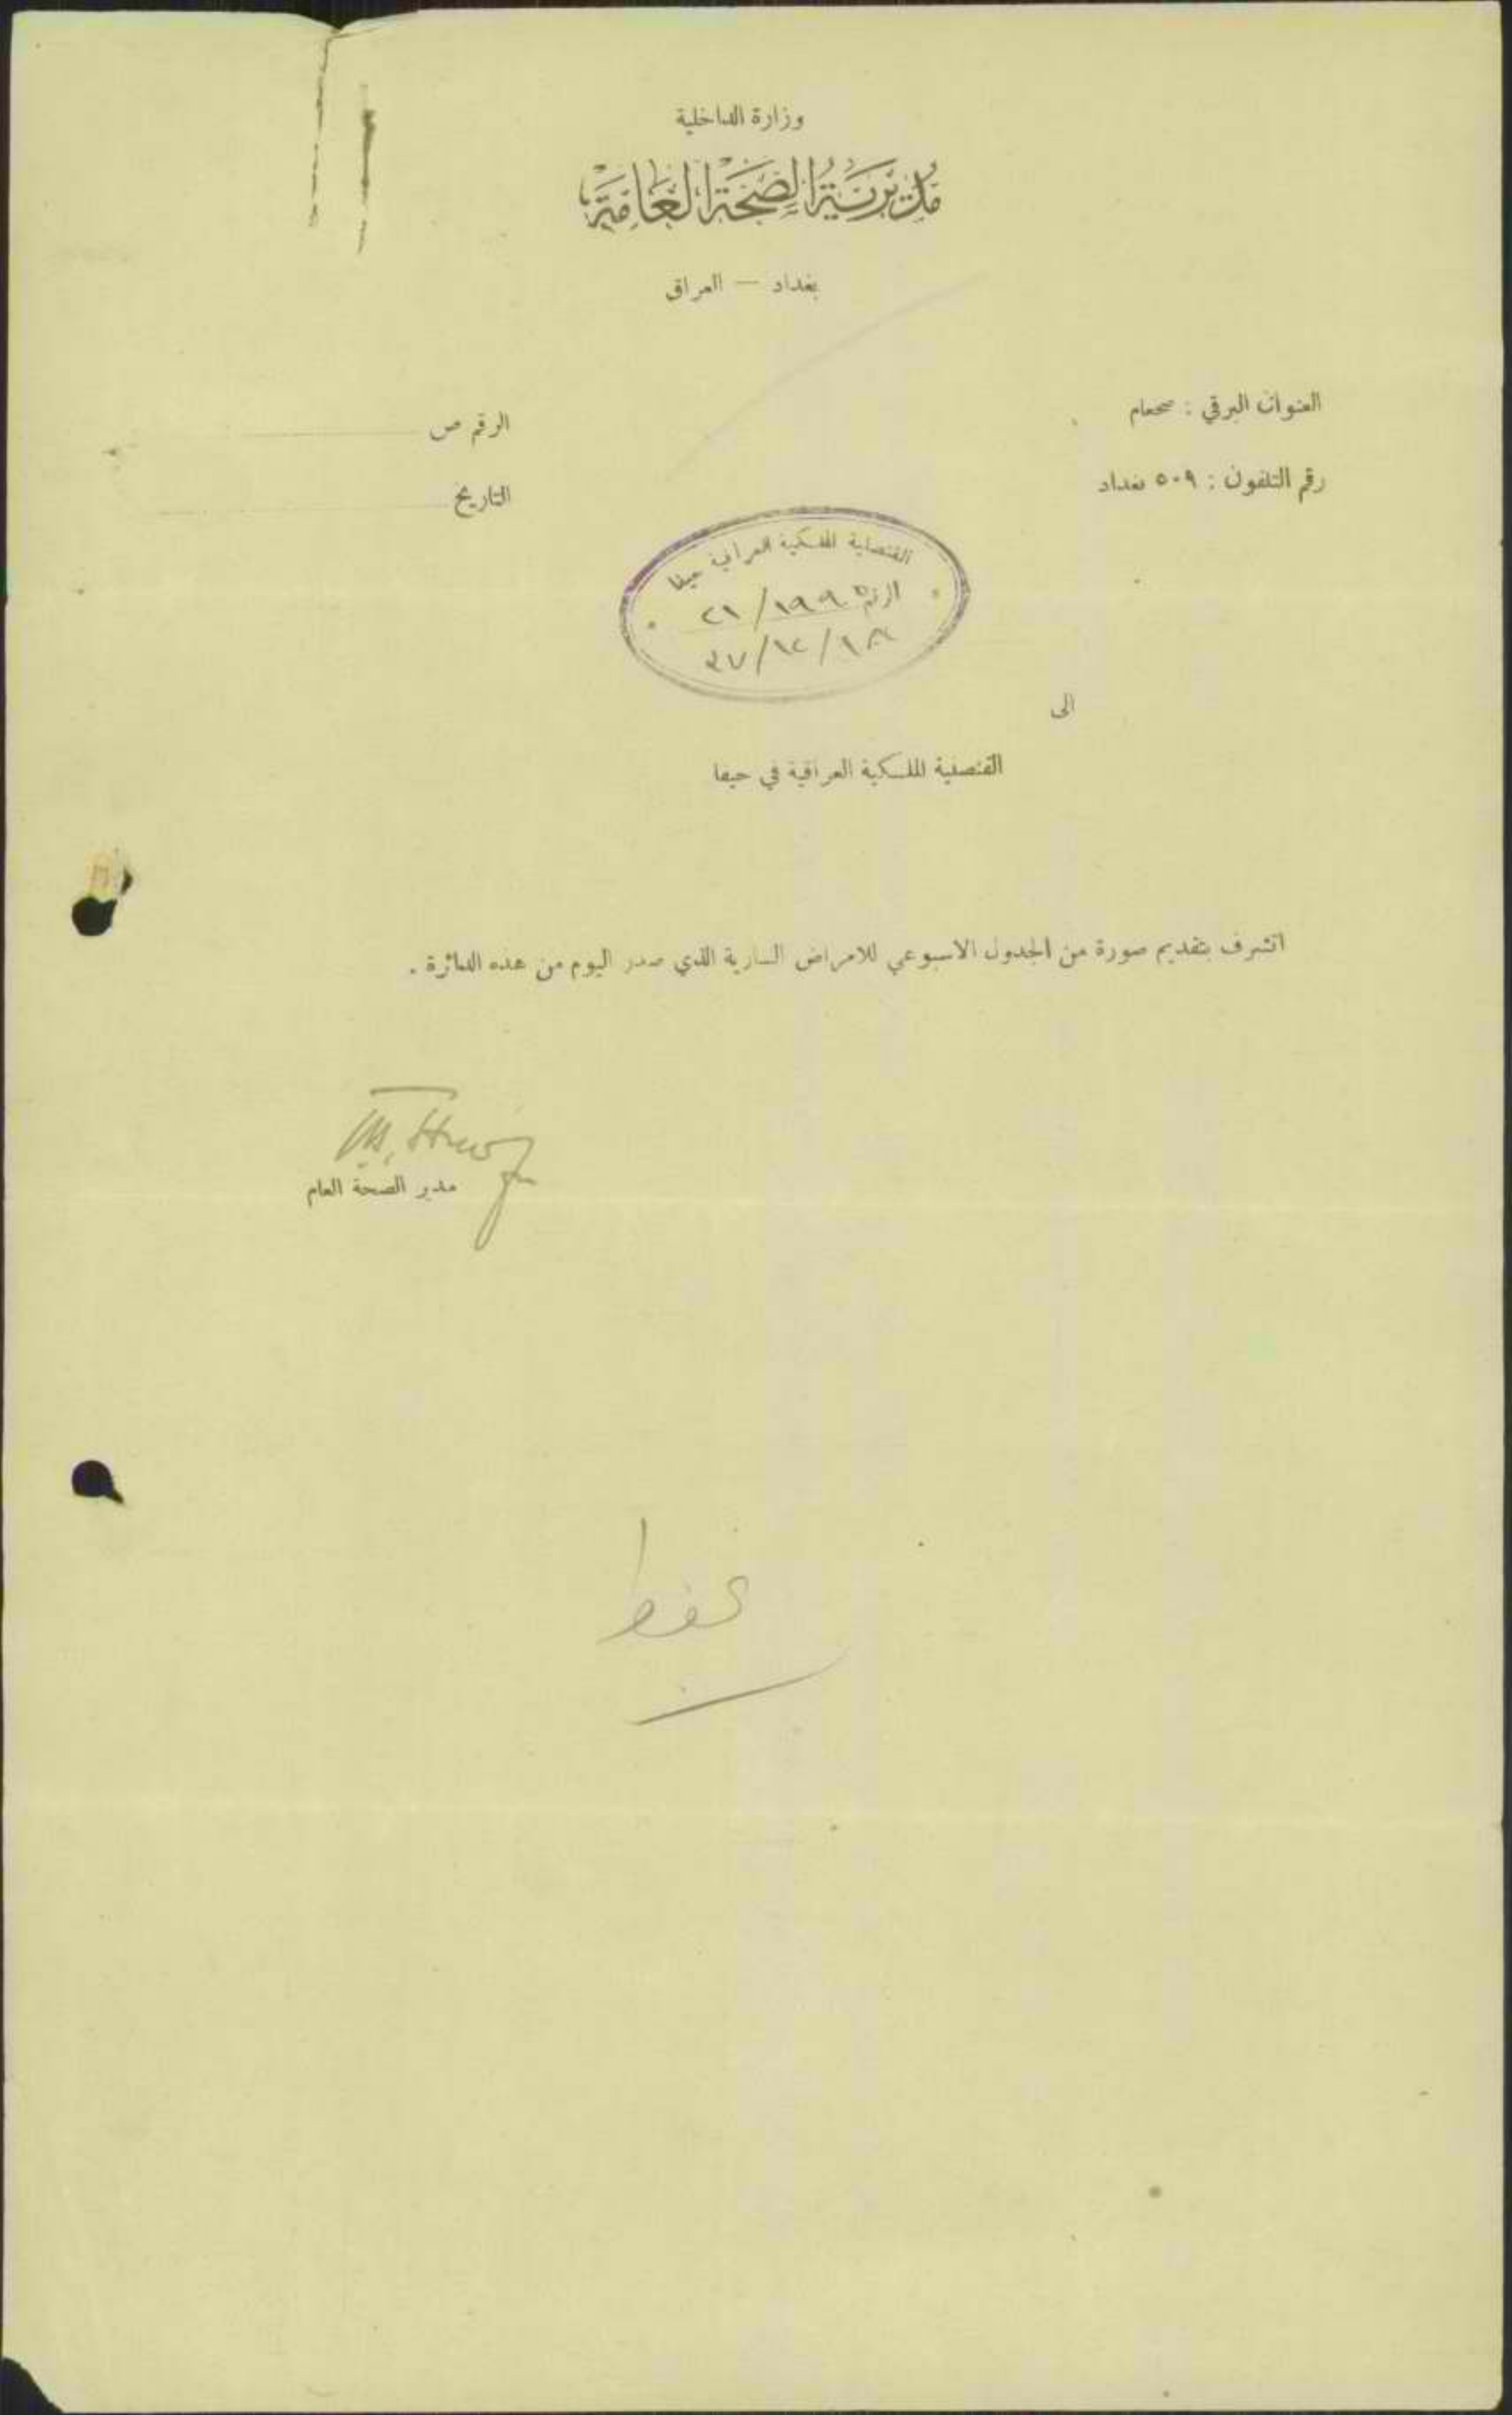 وزارة الداخلية
مديرية الصحة العامة
بغداد — العراق
العنوان البرقي : صحعام
الرقم ص
رقم التلفون : ٥٠٩ بغداد
التاريخ
القنصلية الملكية العراقية حيفا
الرقم ١٩٩/٢١
٣٧/١٢/١٨
الى
القنصلية الملكية العراقية في حيفا
اتشرف بتقديم صورة من الجدول الاسبوعي للامراض السارية الذي صدر اليوم من هذه الدائرة .
مدير الصحة العام
تحفظ